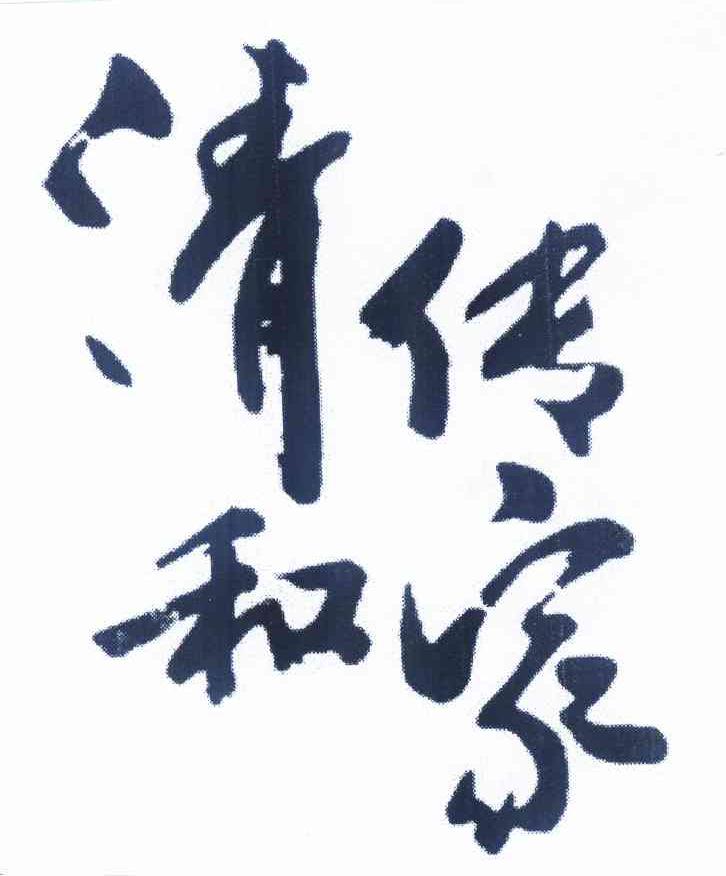 清和
传家